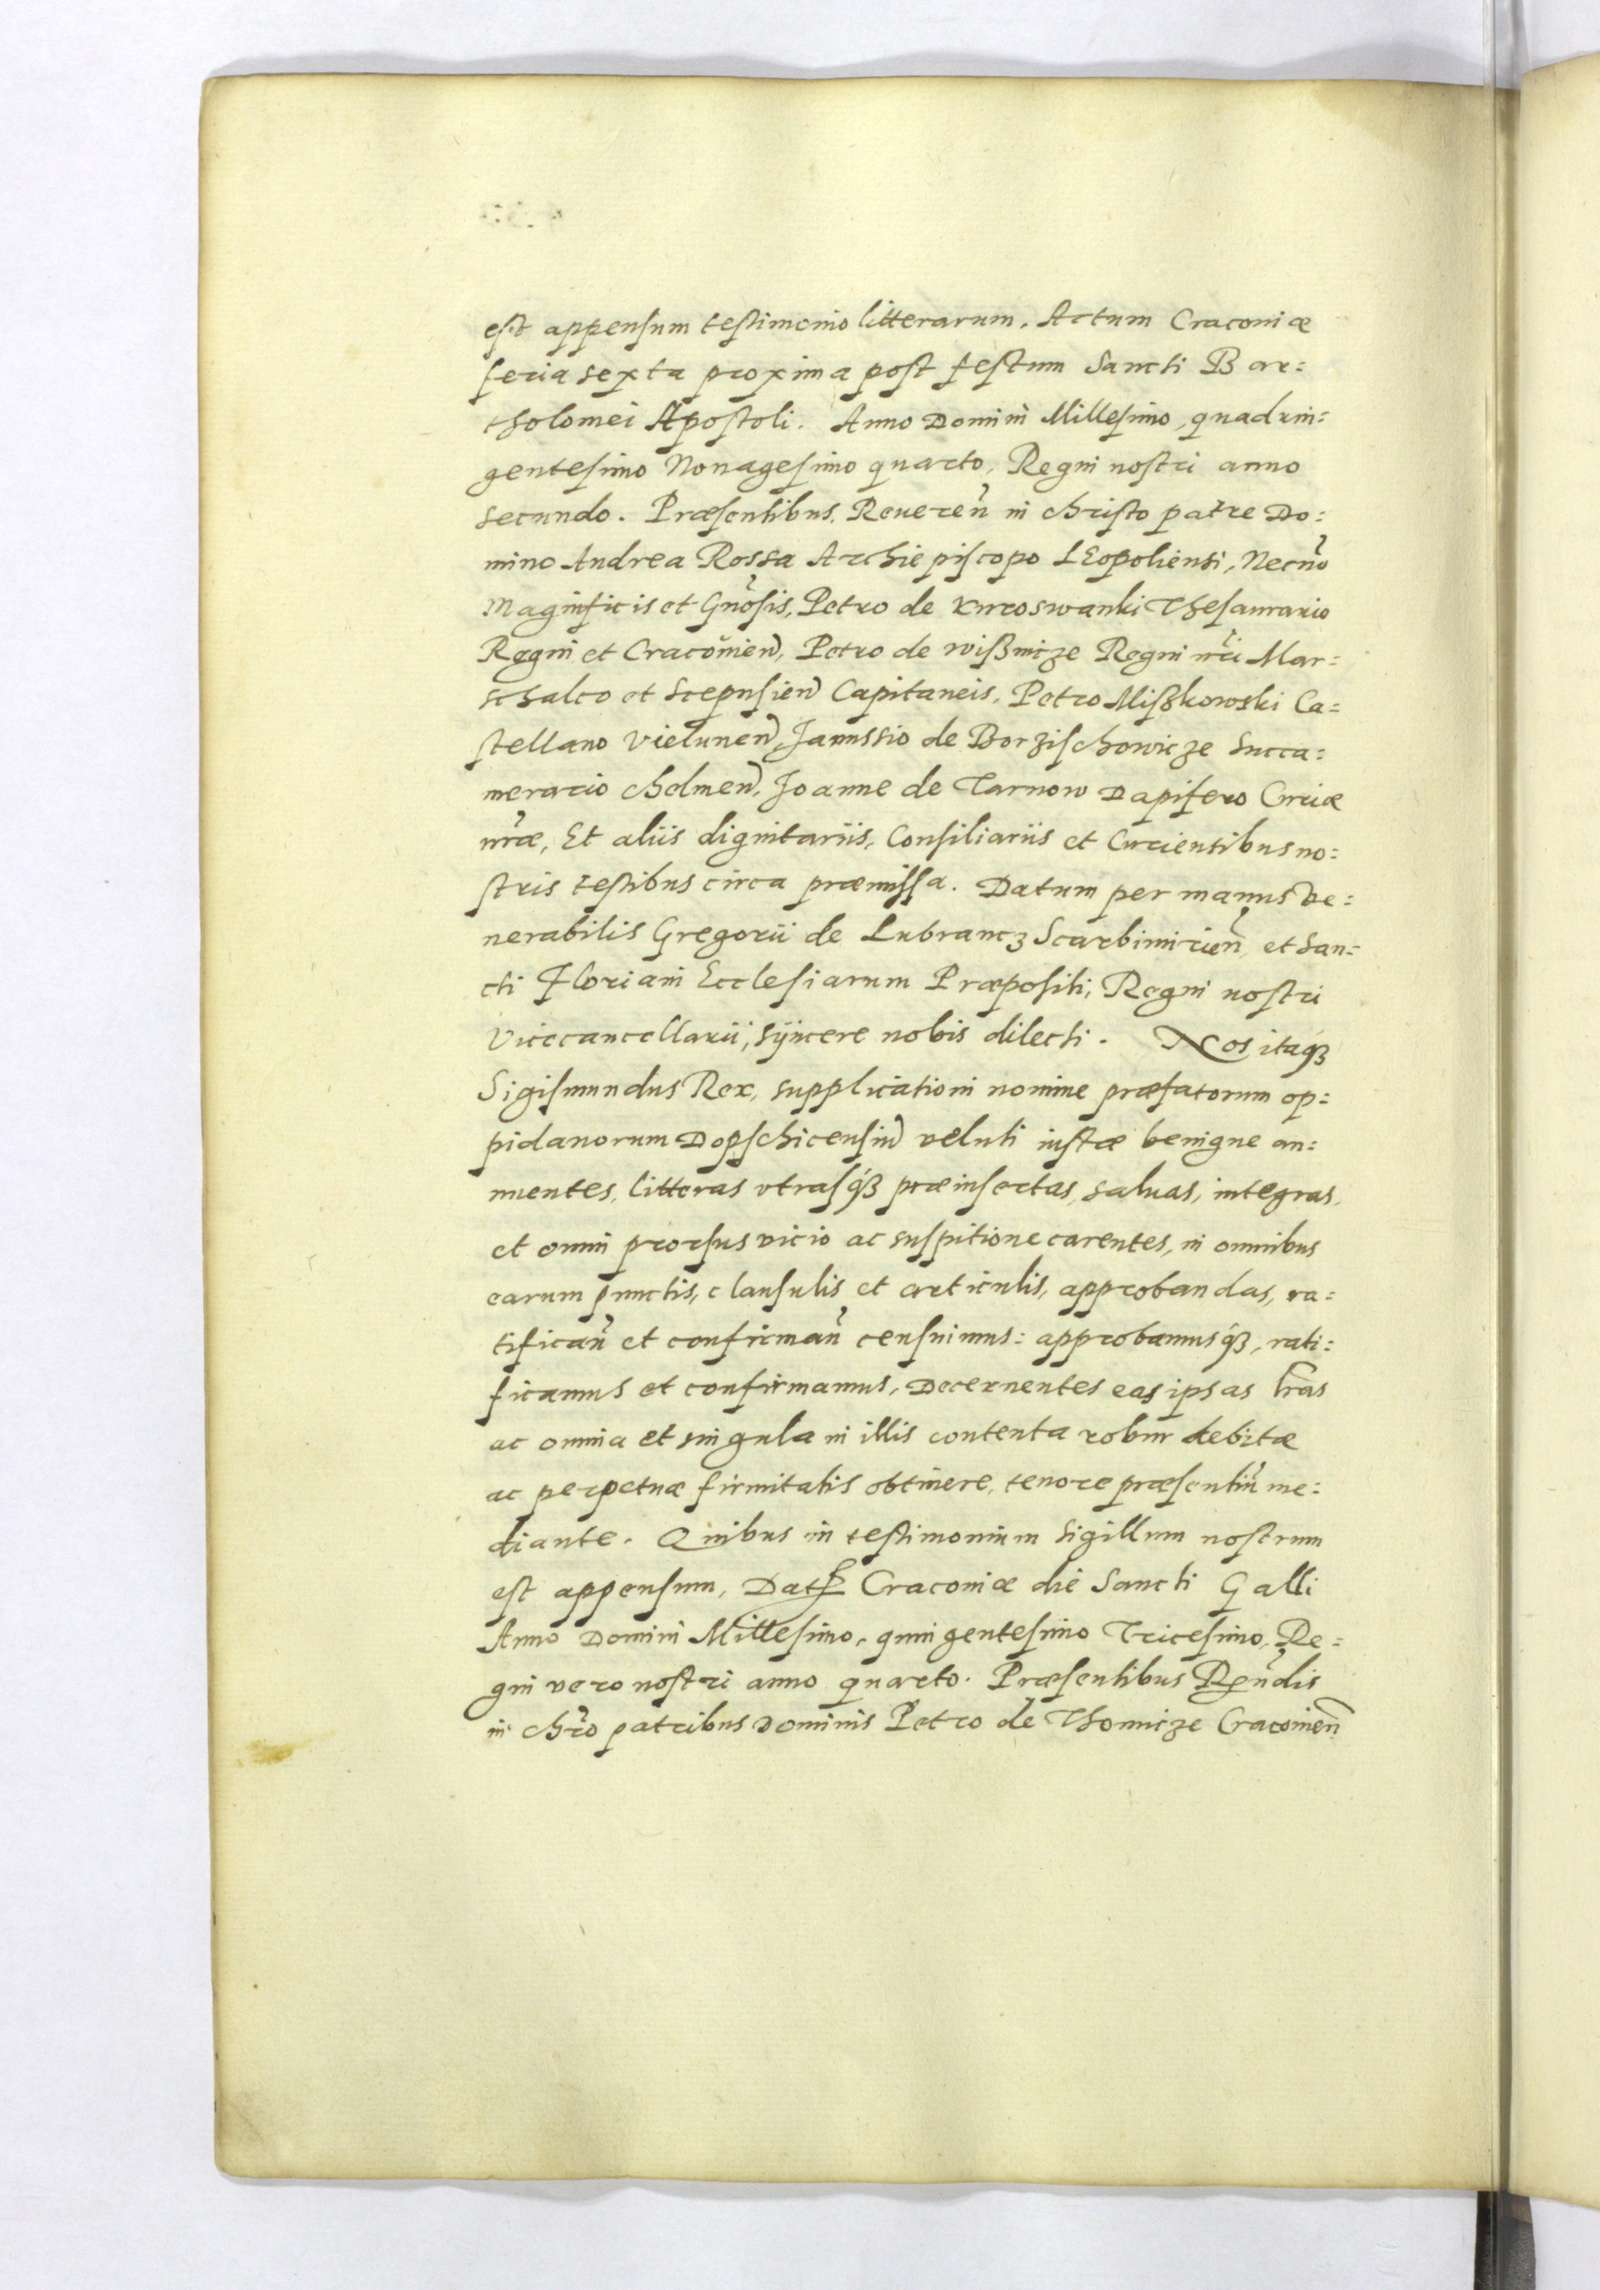 est appensum testimonio litterarum. Actum Craconiæ
feria sexta proxima post festum Sancti Bar=
tholomei Apostoli. Anno Domini Millesimo, quadrin=
gentesimo Nonagesimo quarto, Regni nostri anno
secundo. Præsentibus. Reueren̄ in christo patre Do=
mino Andrea Rossa Archiepiscopo LEopoliensi, Necno
Maginficis et Gnosis, Petro de Kuroswanki Thesaurario
Regni et Craconien̄, Petro de wißnicze Regni nr̄i Mar=
schalco et Scepusien̄ Capitaneis, Petro Mißkowski Ca=
stellano Vielunen̄, Janussio de Borzischowicze Succa=
merario chelmen̄, Joanne de Tarnow Dapifero Curiæ
nr̄æ, Et aliis dignitariis, Consiliariis et Curientibus no=
stris testibus circa præmissa. Datum per manus Ve=
nerabilis Gregorii de Lubrancz Scarbimirien̄ et San=
cti Floriani Ecclesiarum Præpositi, Regni nostri
Vicecancellarii, sÿncere nobis dilecti. Nos itaqꝫ
Sigismundus Rex, supplicationi nomine præfatorum op=
pidanorum Dopschicensiū veluti iustæ benigne an=
nuentes, litteras vtrasqꝫ præinsertas, saluas, integras,
et omni prorsus vicio ac suspitione carentes, in omnibus
earum punctis, clausulis et articulis, approbandas, ra=
tifican̄ et confirman̄ censuimus: approbamusqꝫ, rati=
ficamus et confirmamus, Decernentes eas ipsas lr̄as
ac omnia et singula in illis contenta robur debitæ
ac perpetuæ firmitatis obtinere, tenore præsentiū me=
diante. Quibus in testimonium Sigillum nostrum
est appensum, Dat Craconiæ die Sancti Galli
Anno Domini Millesimo, quingentesimo Tricesimo, Re=
gni vero nostri anno quarto. Præsentibus Ren̄dis
in chr̄o patribus Dominis Petro de Thomicze Craconien̄